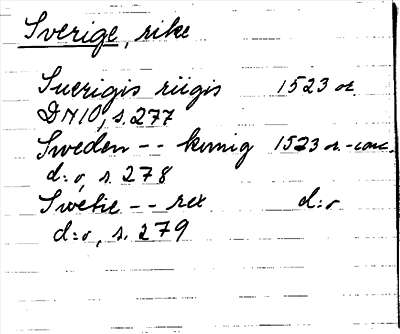 Sverige, rike
Suerigis riigis 1523 or.
DN10, s. 277
Sweden -- konnig 1523 or.-conc.
d:o, s. 278
Swetie -- rex d:o
d:o, s. 279